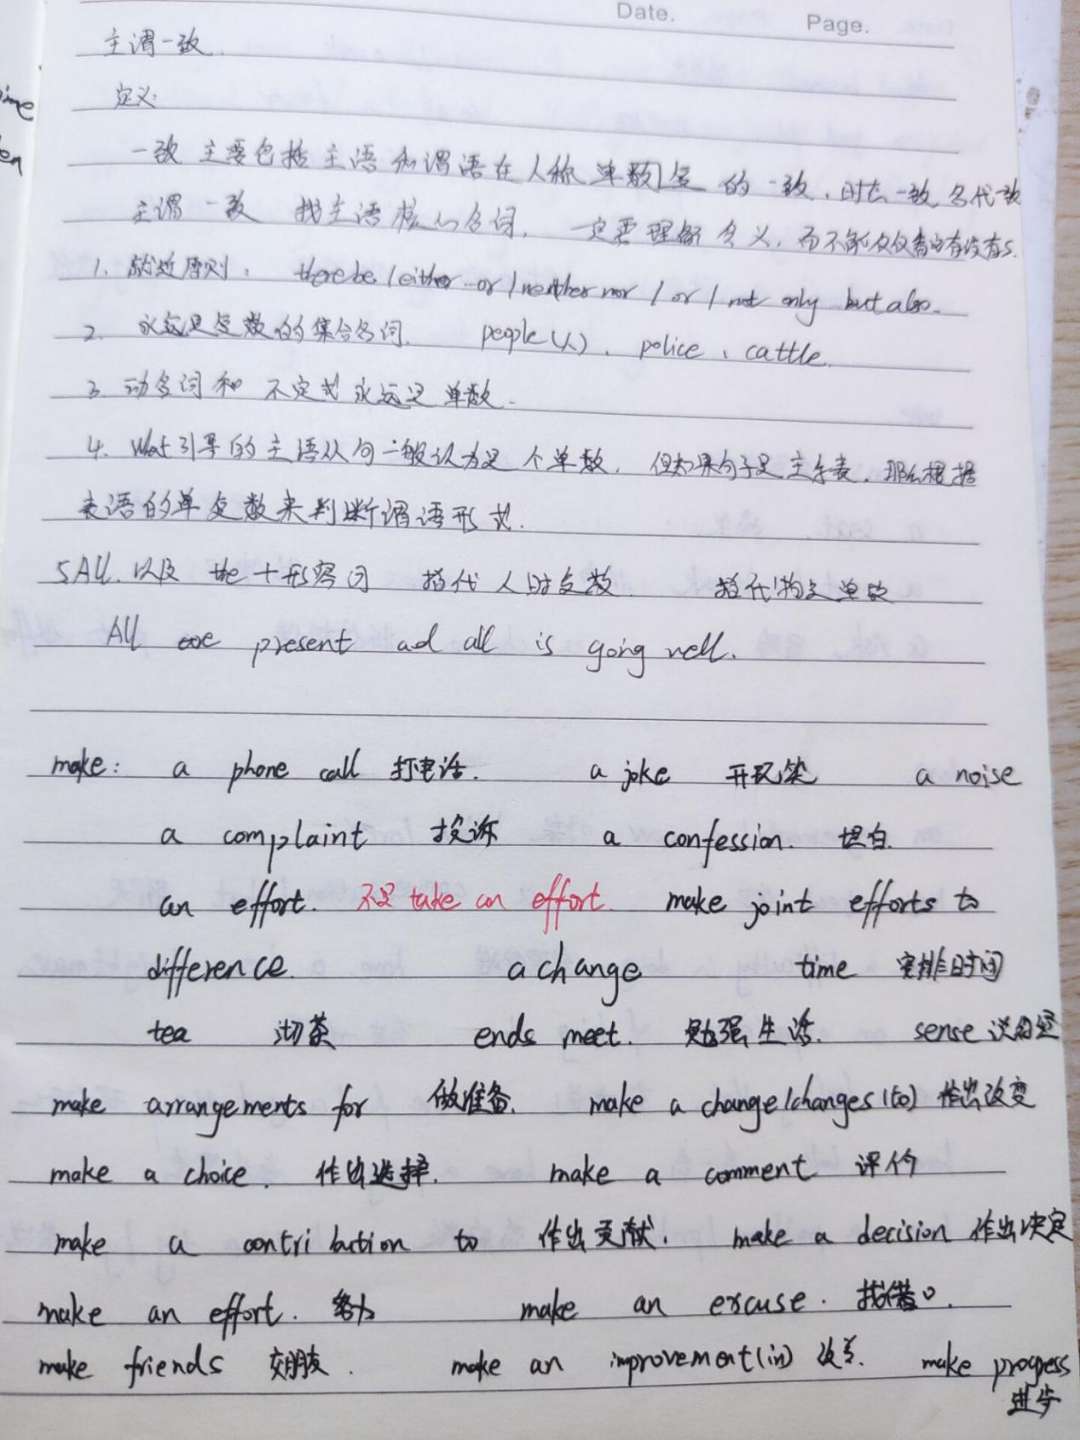 Date. Page.
主谓一致
定义:
一致主要包括主语和谓语在人称单数复的一致,时态一致,名代一致
主谓一致 找主语核心名词, 一定要理解含义,而不能仅仅看有没有s.
1. 就近原则: there be / either or / neither nor / or / not only but also.
2. 永远是复数的集合名词. people(人), police, cattle.
3 动名词和不定式永远是单数.
4. What引导的主语从句一般认为是个单数, 但如果句子是主系表, 那么根据
表语的单复数来判断谓语形式.
5 All. 以及 the + 形容词 指代人时复数 指代物是单数
All are present ad all is going well.
make: a phone call 打电话. a joke 开玩笑 a noise
a complaint 投诉 a confession. 坦白.
an effort. 不是 take an effort. make joint efforts to
difference. a change time 安排时间
tea 沏茶 ends meet. 勉强生活. sense 说的通
make arrangements for 做准备. make a change/changes (to) 作出改变
make a choice. 作出选择. make a comment 评价
make a contribution to 作出贡献. make a decision 作出决定
make an effort. 努力 make an excuse. 找借口.
make friends 交朋友. make an improvement(in) 改善. make progress
进步